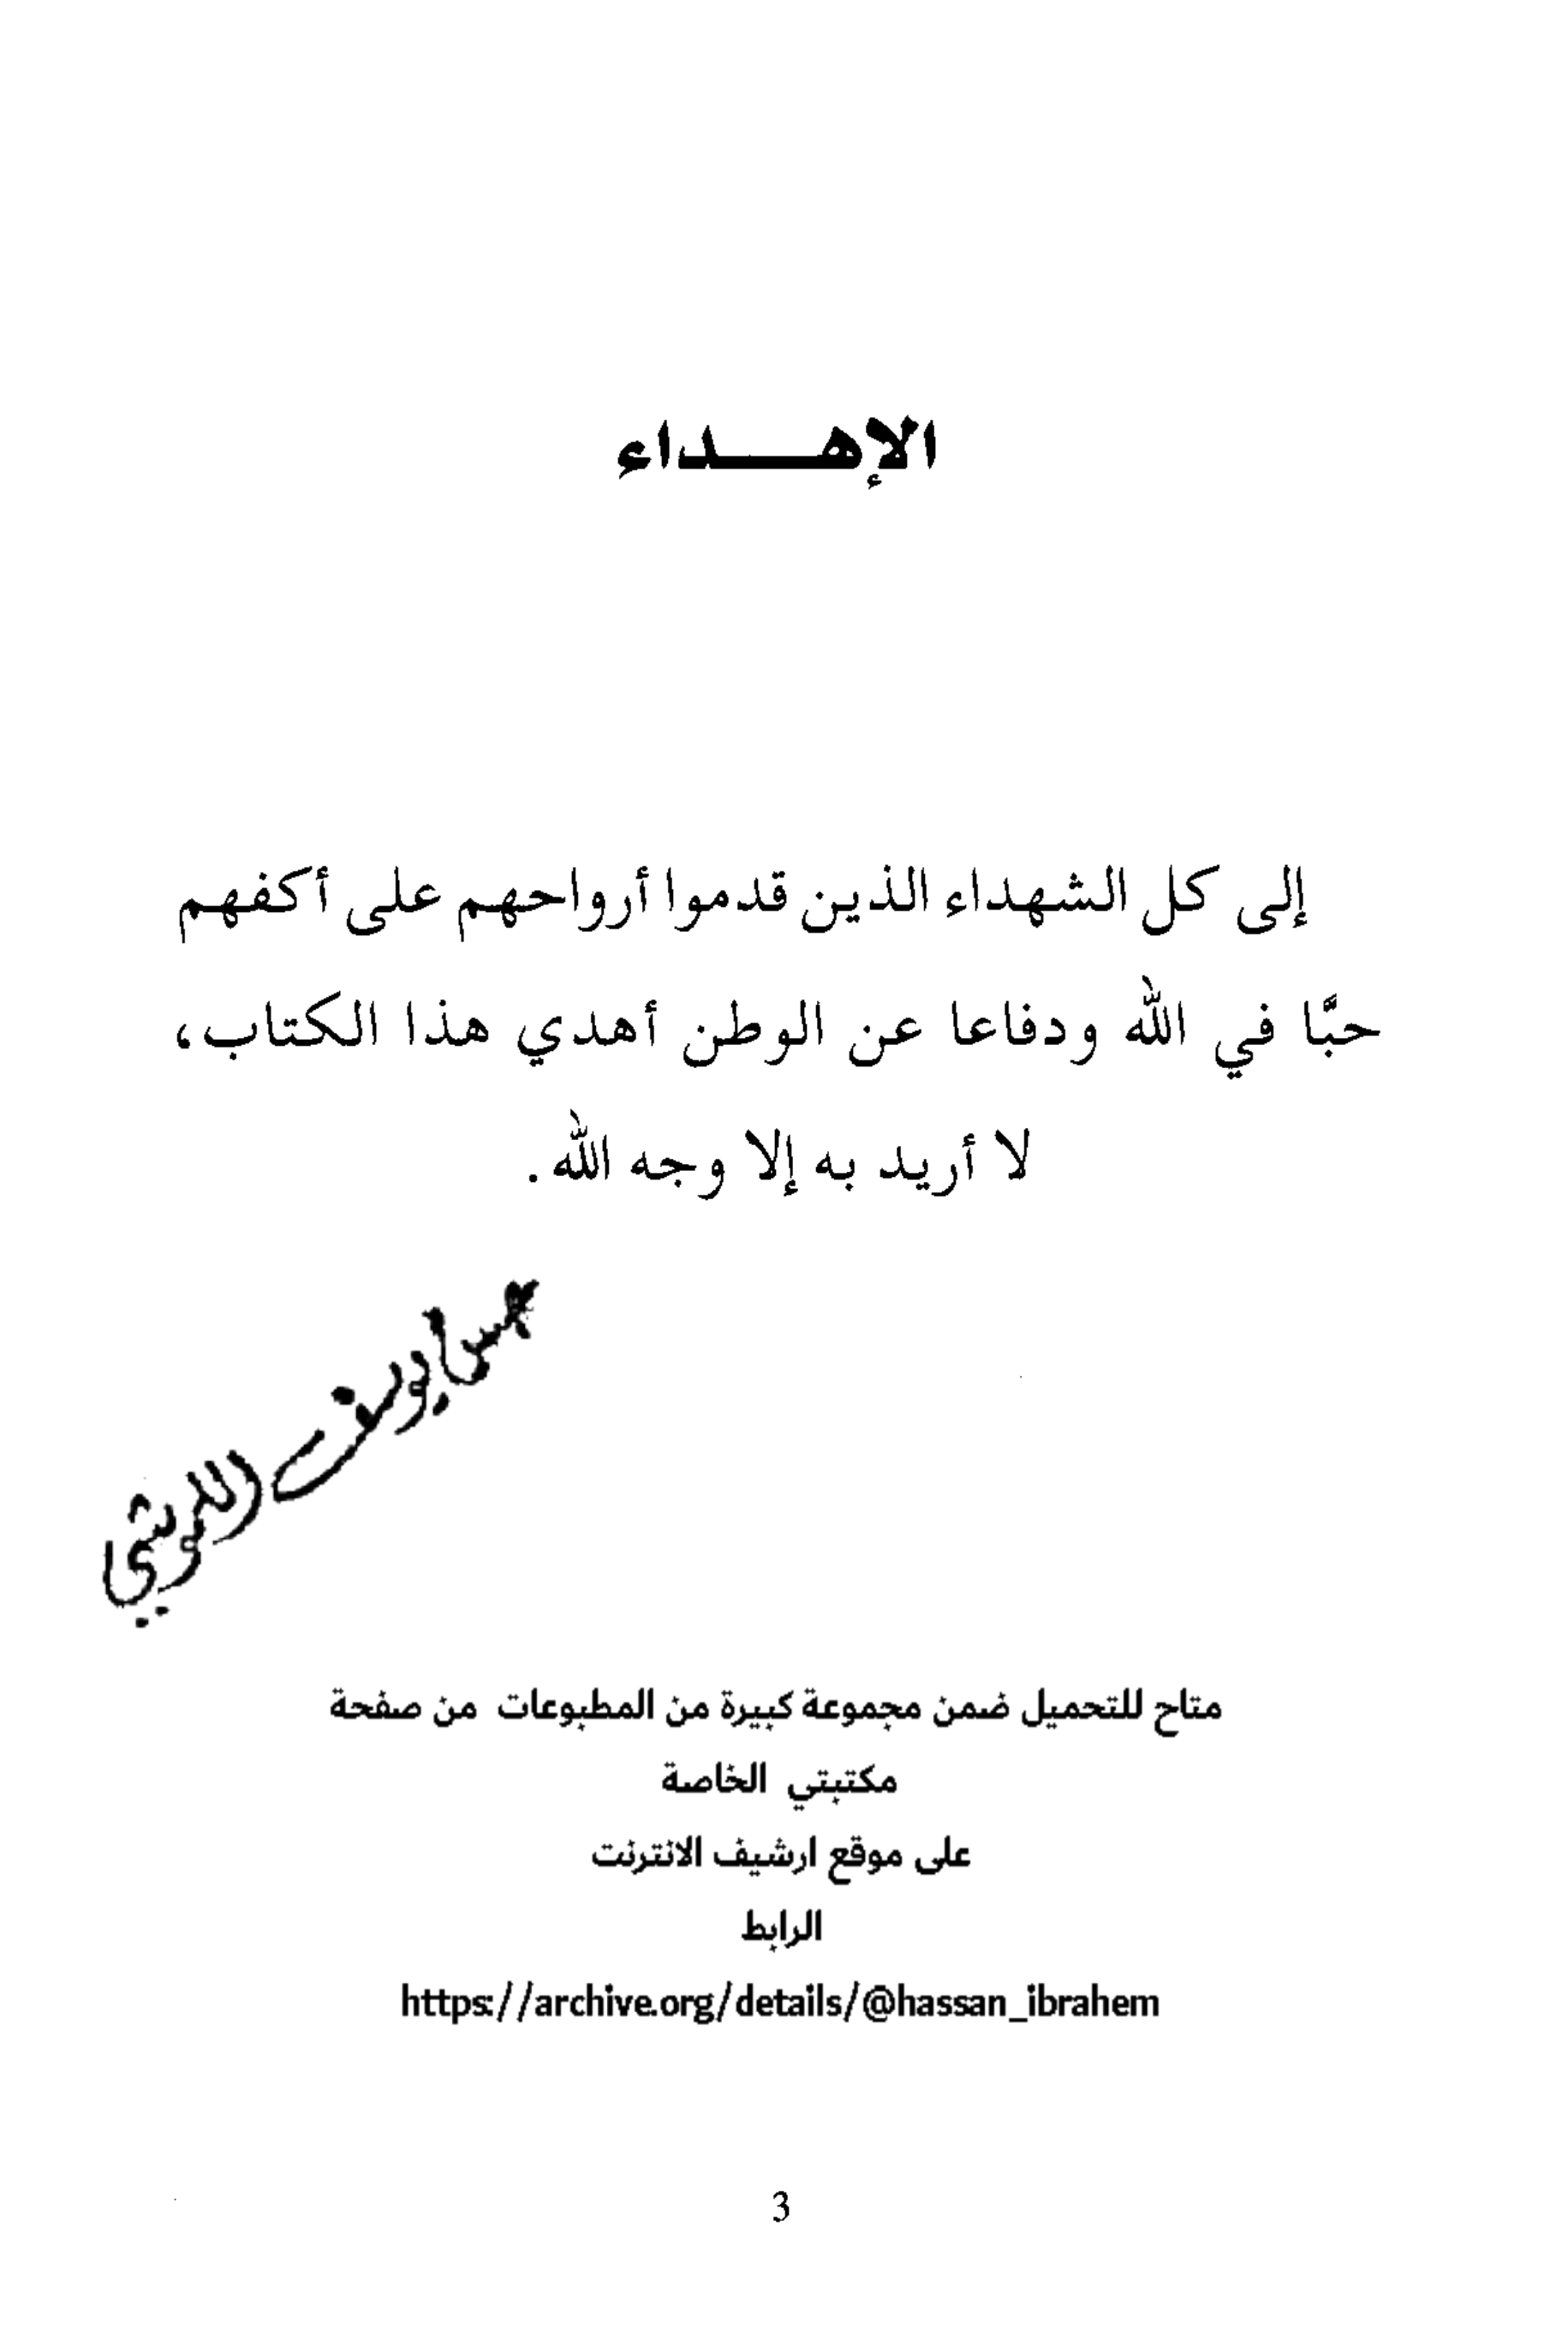 الإهـــداء
إلى كل الشهداء الذين قدموا أرواحهم على أكفهم
حبًّا في الله ودفاعا عن الوطن أهدي هذا الكتاب،
لا أريد به إلا وجه الله.
يوسف
متاح للتحميل ضمن مجموعة كبيرة من المطبوعات من صفحة
مكتبتي الخاصة
على موقع ارشيف الانترنت
الرابط
https://archive.org/details/@hassan_ibrahem
3